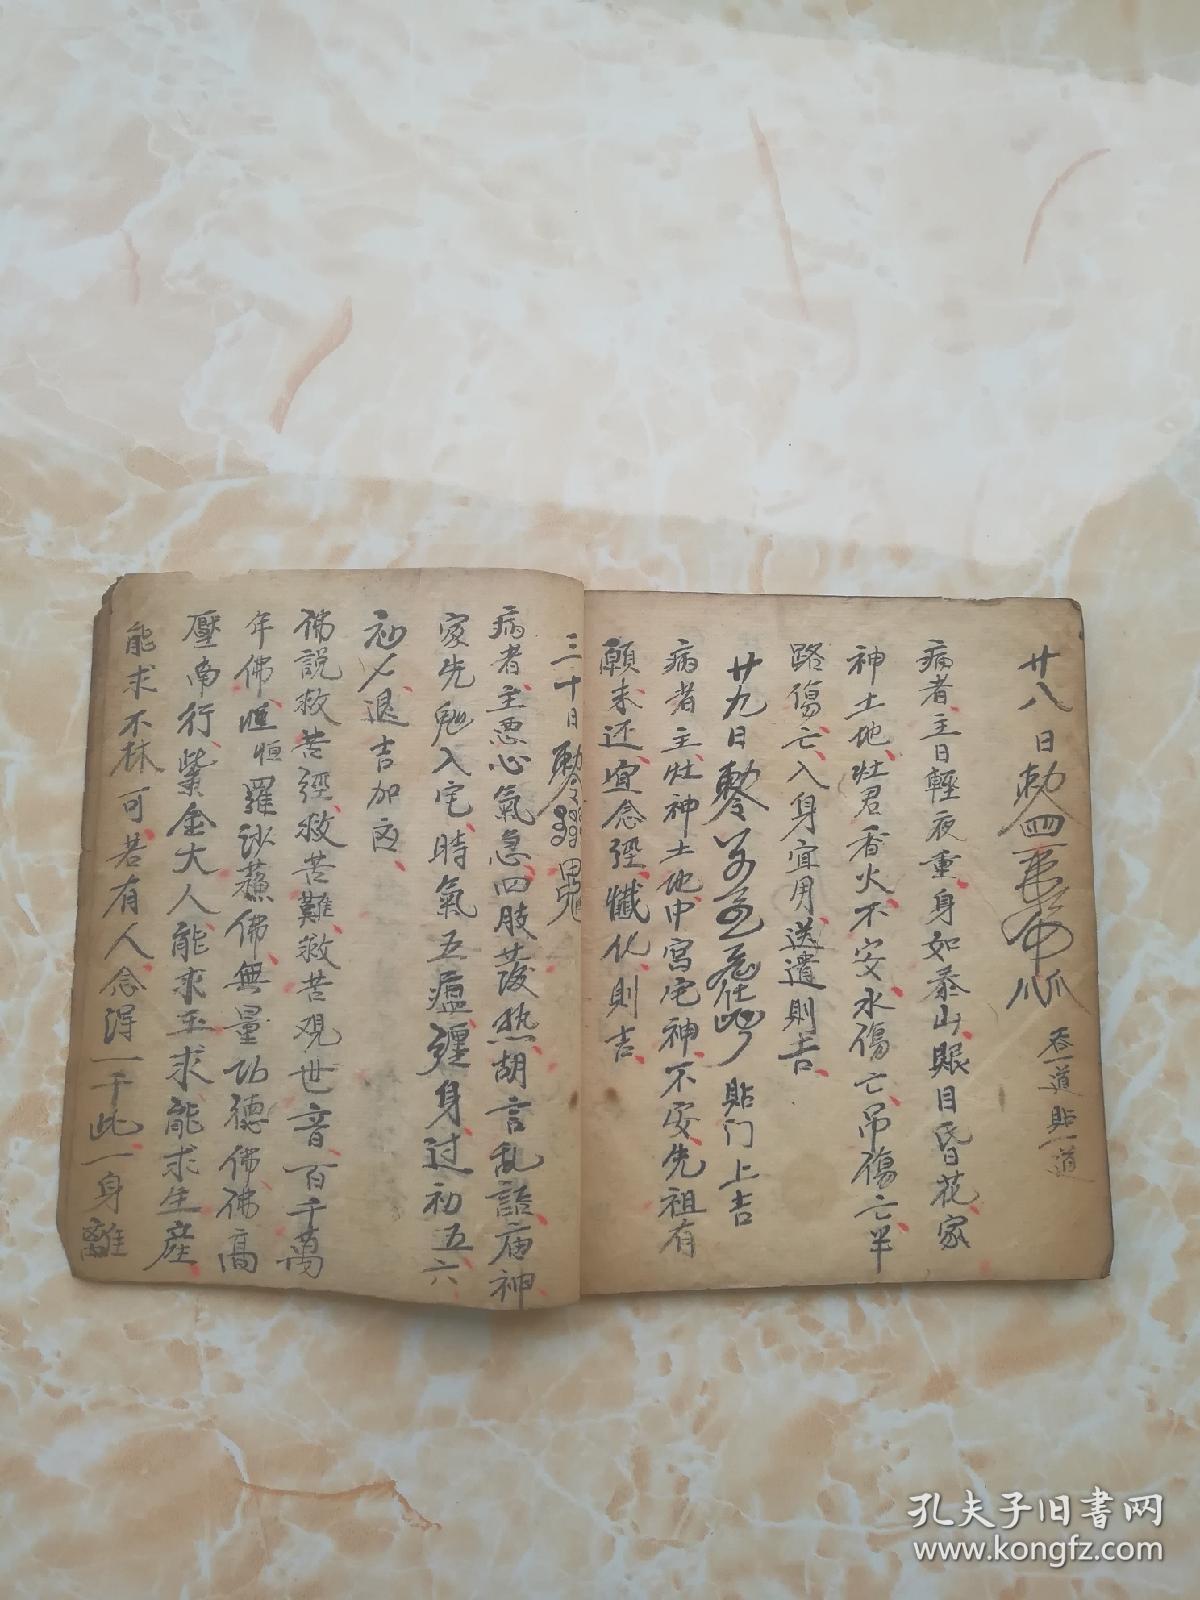 廿八日敕
吞一道貼一道
病者主日輕夜重身如泰山眼目昏花家
神土地灶君香火不安水傷亡吊傷亡半
路傷亡入身宜用送遣則吉
廿九日
貼门上吉
病者主灶神土地中宫宅神不安先祖有
願未还宜念經懺化則吉
三十日
病者主惡心氣急四肢發热胡言乱語庙神
家先鬼入宅時氣五瘟纏身过初五六
初人退吉加凶
佛説救苦經救苦難救苦观世音百千萬
年佛恒恒羅沙蕪佛無量功德佛佛高
壓南行紫金大人能求玉求能求生產
能求不林可若有人念得一千此一身離
孔夫子旧書网
www.kongfz.com